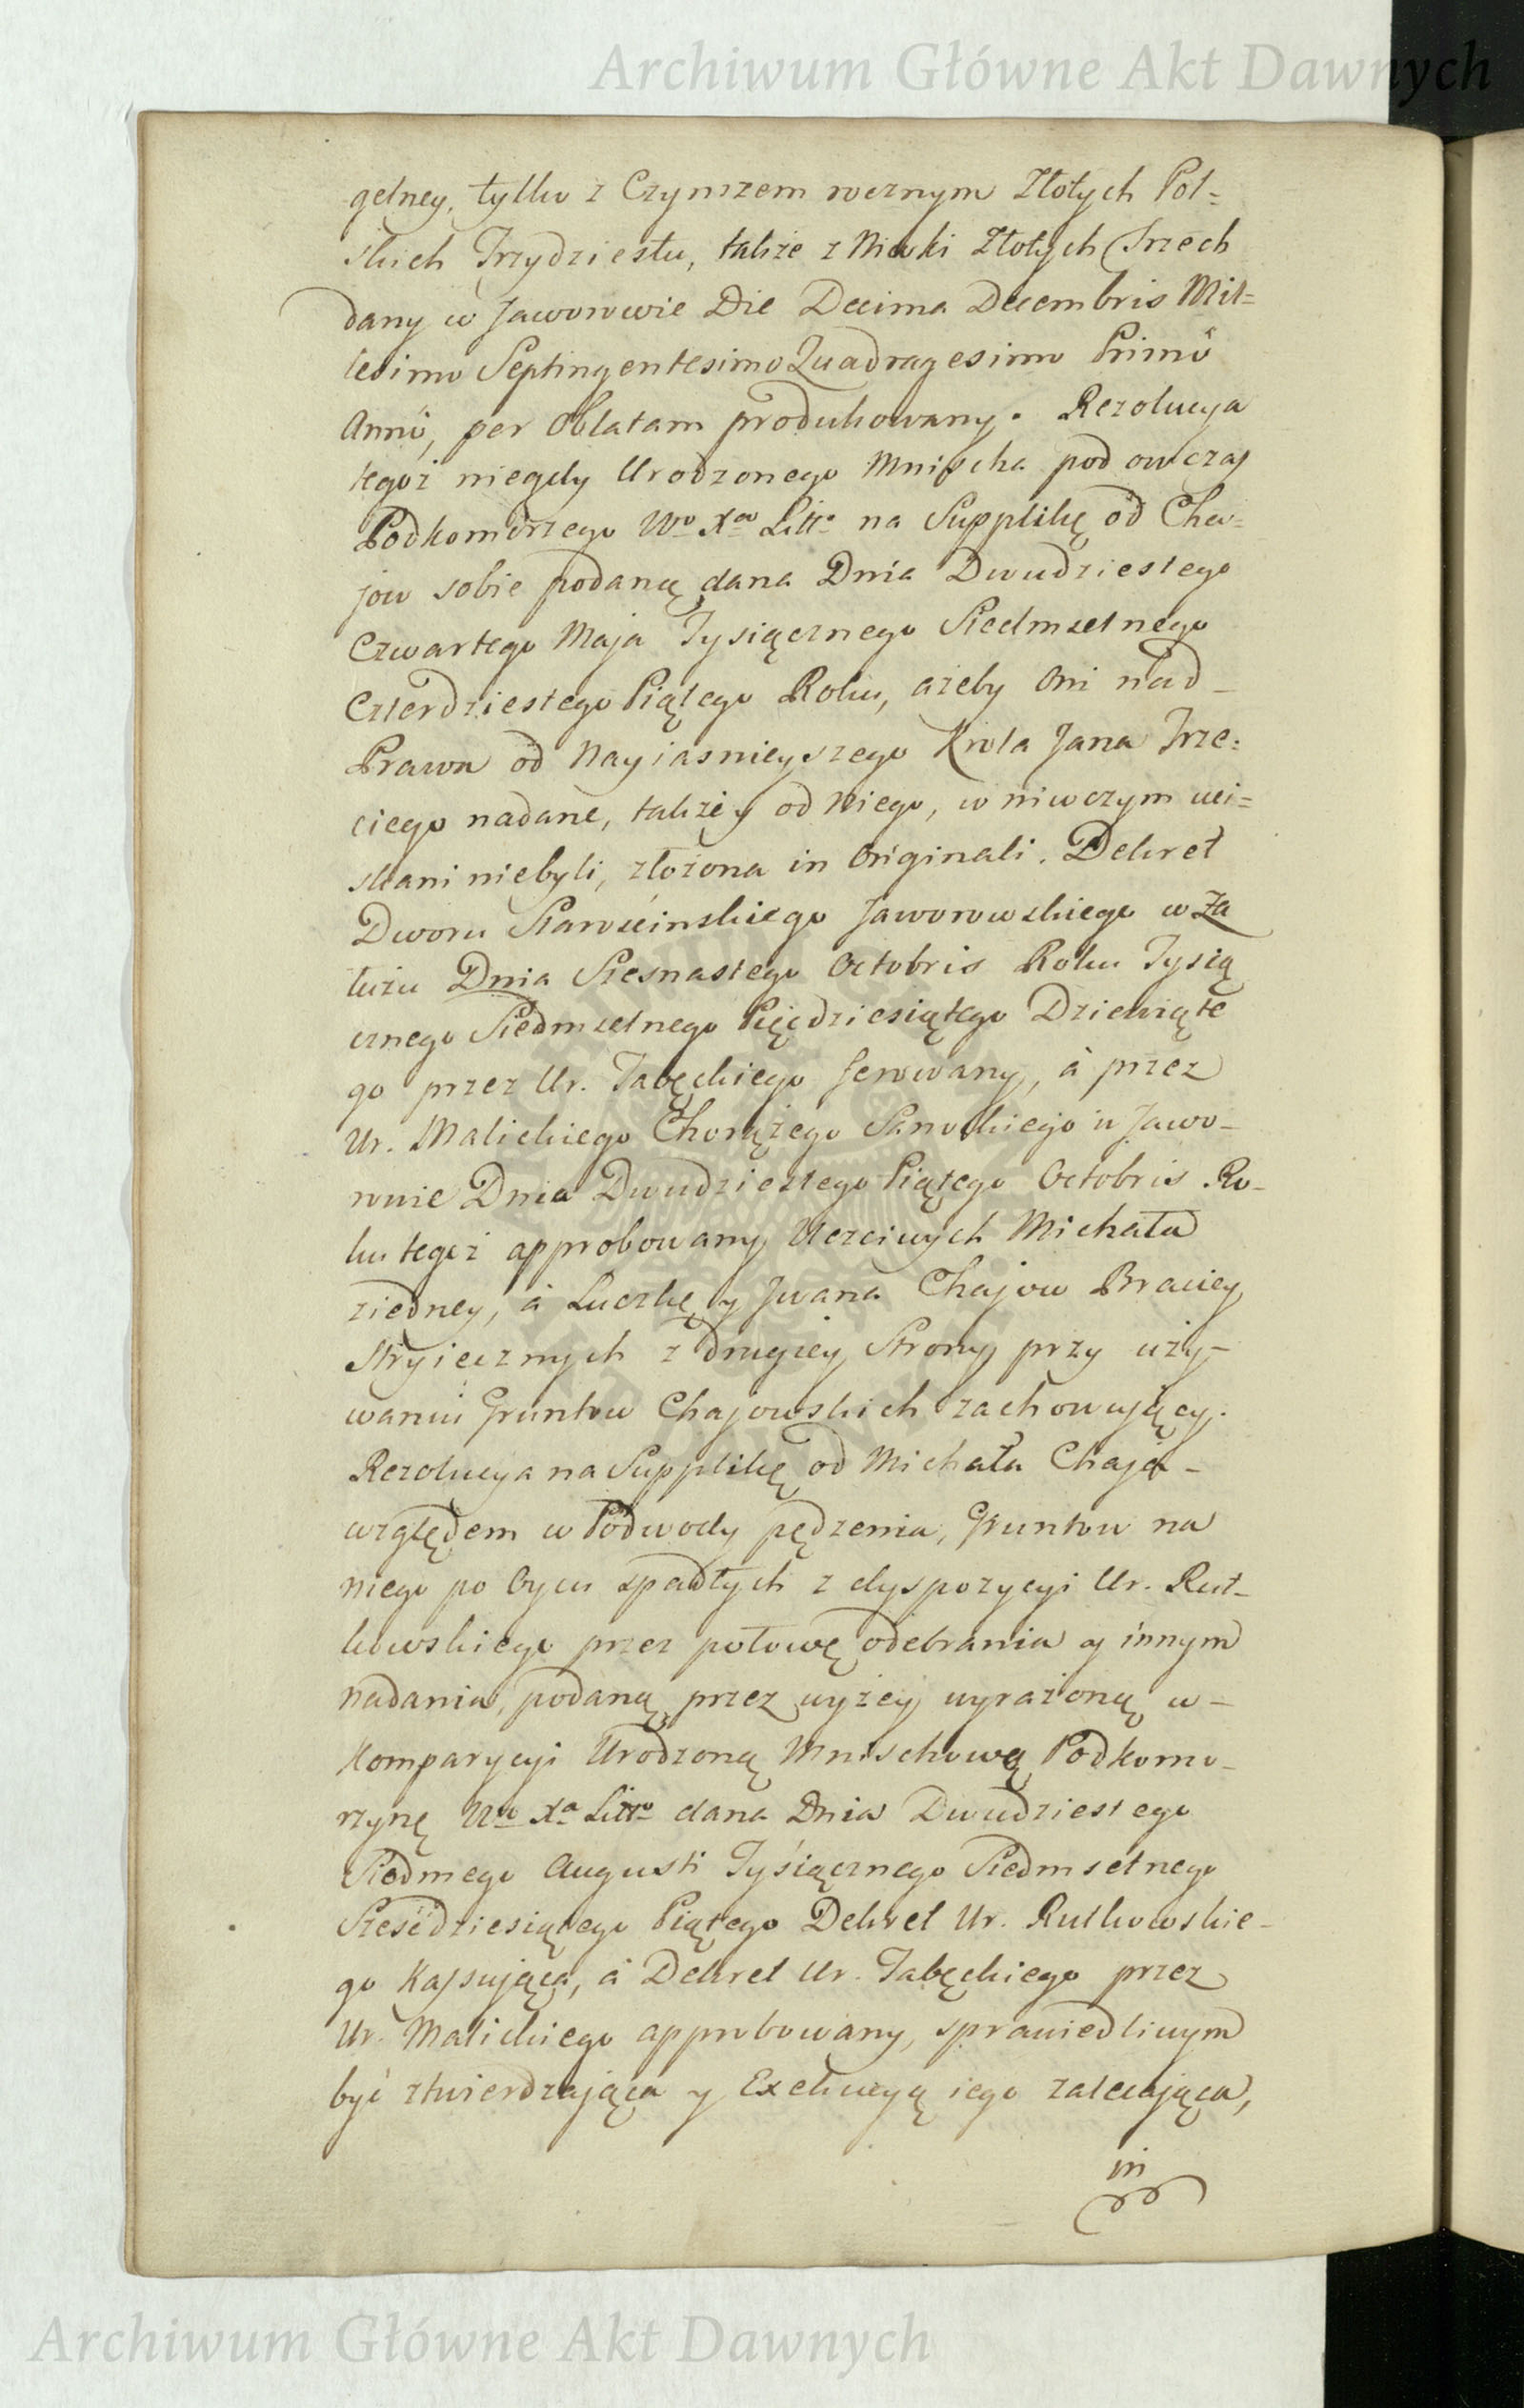 Archiwum Główne Akt Dawnych
gelney, tylko z Czynszem rocznym Złotych Pol=
skich Trzydziestu, także z Niwki Złotych Trzech
dany w Jaworowie Die Decima Decembris Mil=
lesimo Septingentesimo Quadragesimo Primô
Annô, per Oblatam produkowany. Rezolucya
tegoż niegdy Urodzonego Mniścha pod ow czas
Podkomorzego Wo Xa Litto na Supplikę od Cha=
jow sobie podaną dana Dnia Dwudziestego
Czwartego Maja Tysiącznego Siedmsetnego
Czterdziestego Piątego Roku, ażeby Oni nad_
Prawa od Nayiasnieyszego Krola Jana Trze=
ciego nadane, także y od Niego, w niwczym uci=
skani niebyli, złożona in Originali. Dekret
Dworu Starościnskiego Jaworowskiego w Za
łużu Dnia Szesnastego Octobris Roku Tysią
cznego Siedmsetnego Pięćdziesiątego Dziewiąte
go przez Ur. Tabęckiego ferowany, à przez
Ur. Malickiego Chorążego Sanockiego w Jawo_
rowie Dnia Dwudziestego Piątego Octobris Ro_
ku tegoż approbowany Uczciwych Michała
ziedney, à Luczkę y Jwana Chajow Braciey
Stryiecznych z drugiey Strony przy uży_
waniu Gruntow Chajowskich zachowujący.
Rezolucya na Supplikę od Michała Chaja_
względem w Podwody pędzenia, Gruntow na
niego po Oycu spadłych z dyspozycyi Ur. Rut_
kowskiego przez połowę odebrania y innym
nadania, podaną przez wyżey wyrażoną w_
Komparycyi Urodzoną Mnischową Podkomo_
rzynę Wo Xa Litto dana Dnia Dwudziestego
Siodmego Augusti Tyśiącznego Siedmsetnego
Sześćdziesiątego Piątego Dekret Ur. Rutkowskie_
go Kassująca, à Dekret Ur. Tabęckiego przez
Ur. Malickiego approbowany, sprawiedliwym
być ztwierdzająca y Exekucyą iego zalecająca,
in
Archiwum Główne Akt Dawnych